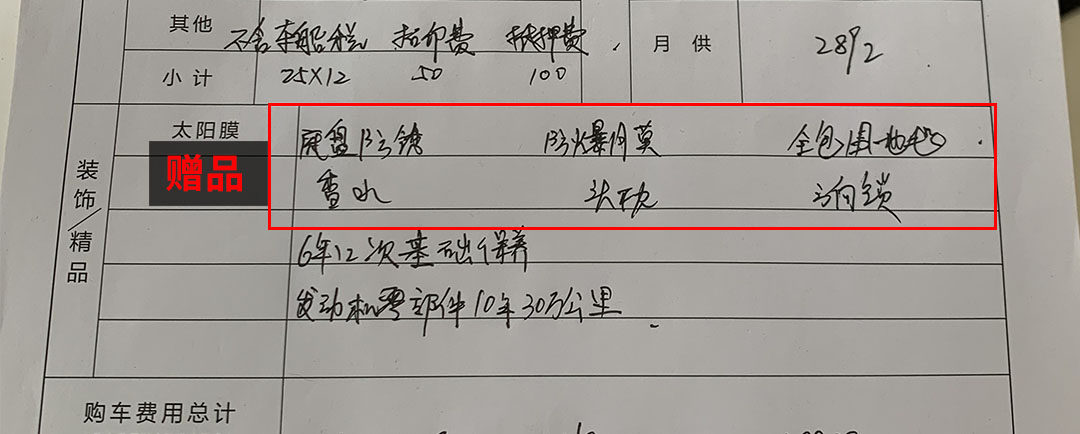 其他 不含车船税 打印费 抵押费. 月供 2892
小计 25X12 50 100
太阳膜 底盘防锈 防爆膜 全包围地毯.
赠品 香水 头枕 方向锁
装饰/精品
6年12次基础保养
发动机零部件10年30万公里.
购车费用总计